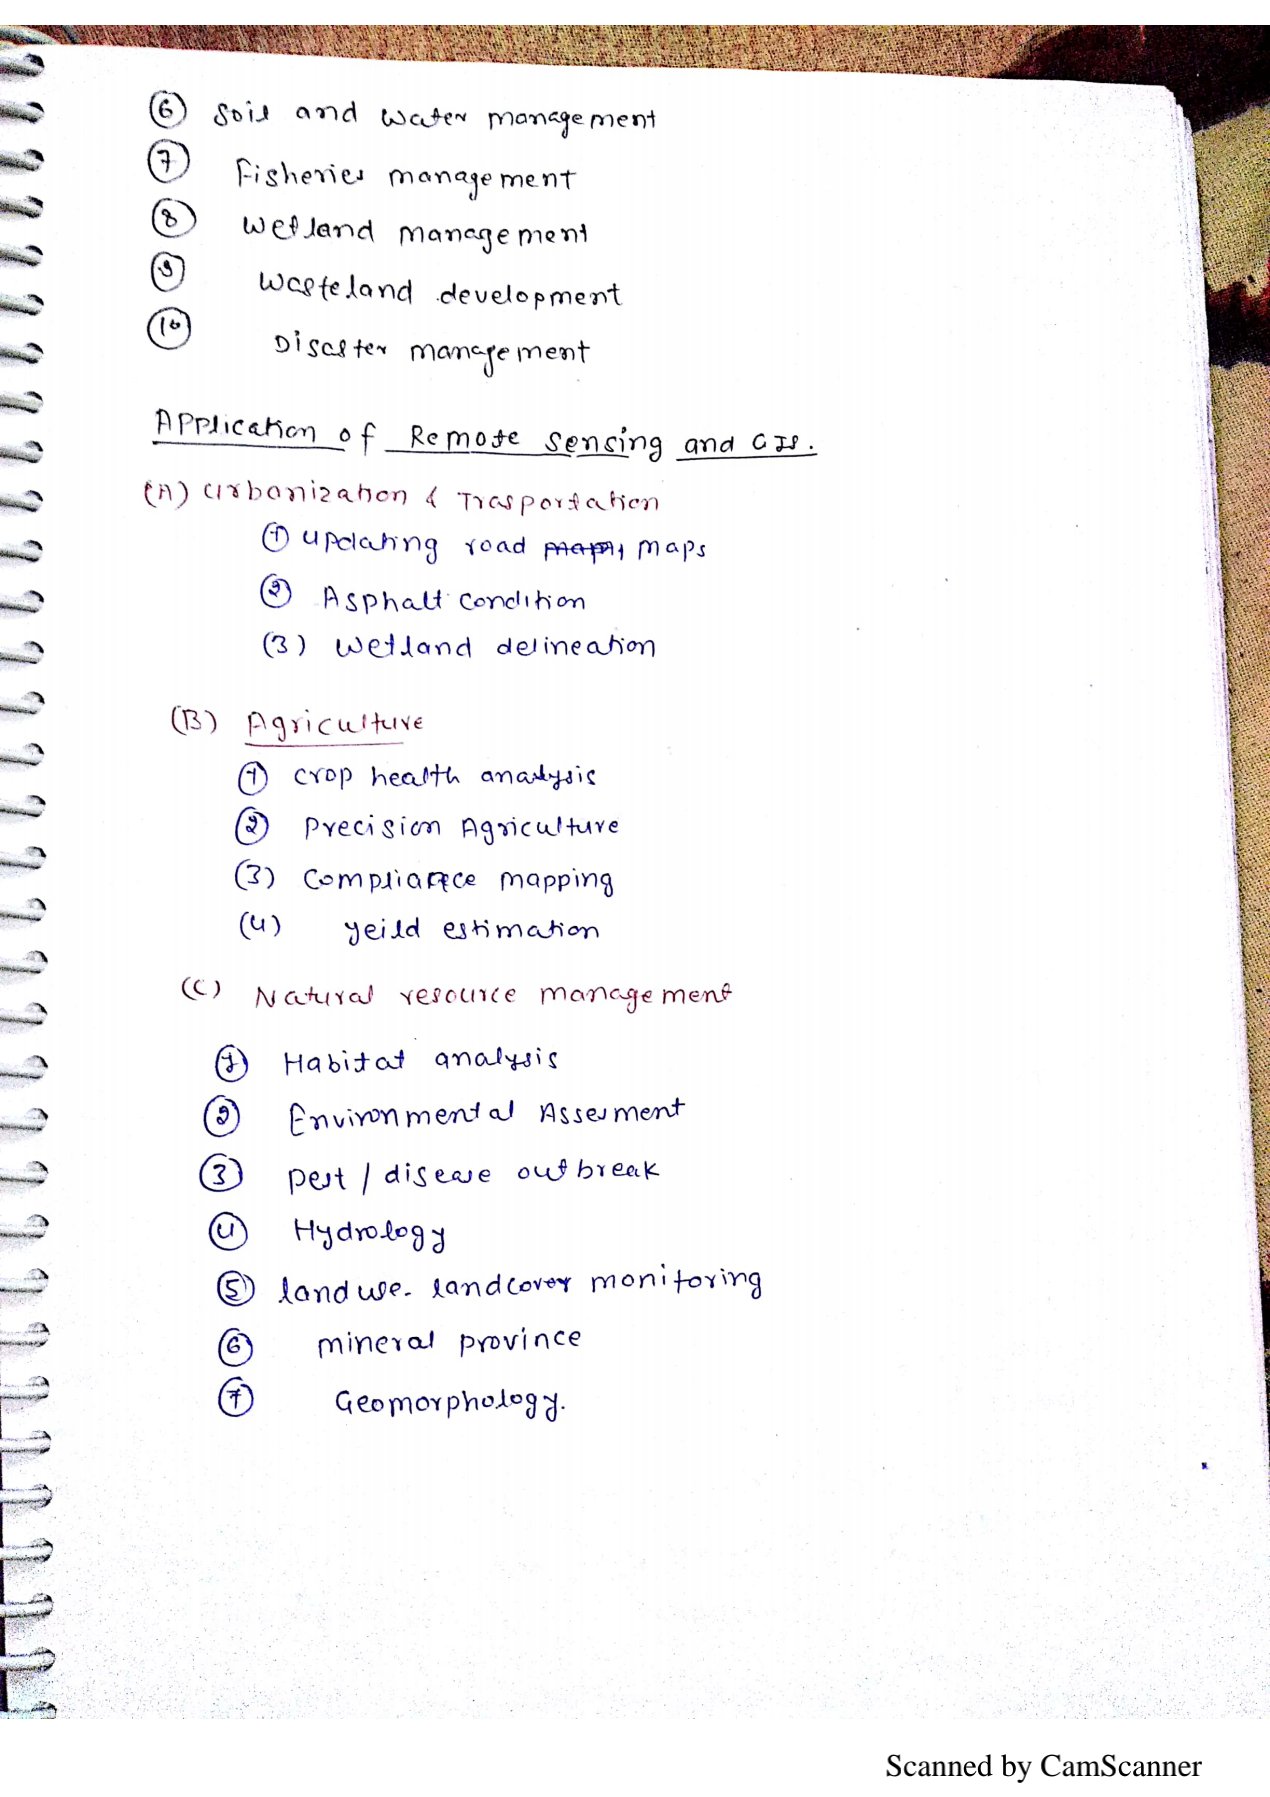 6 Soil and water management
7 Fisheries management
8 Wetland management
9 Wasteland development
10 Disaster management
Application of Remote sensing and GIS.
(A) Urbanization & Trasportation
1 updating road maps, maps
2 Asphalt condition
(3) Wetland delineation
(B) Agriculture
1 crop health analysis
2 Precision Agriculture
(3) Compliance mapping
(4) yeild estimation
(C) Natural resource management
1 Habitat analysis
2 Environmental Assesment
3 pest / disease outbreak
4 Hydrology
5 land use- landcover monitoring
6 mineral province
7 Geomorphology.
Scanned by CamScanner